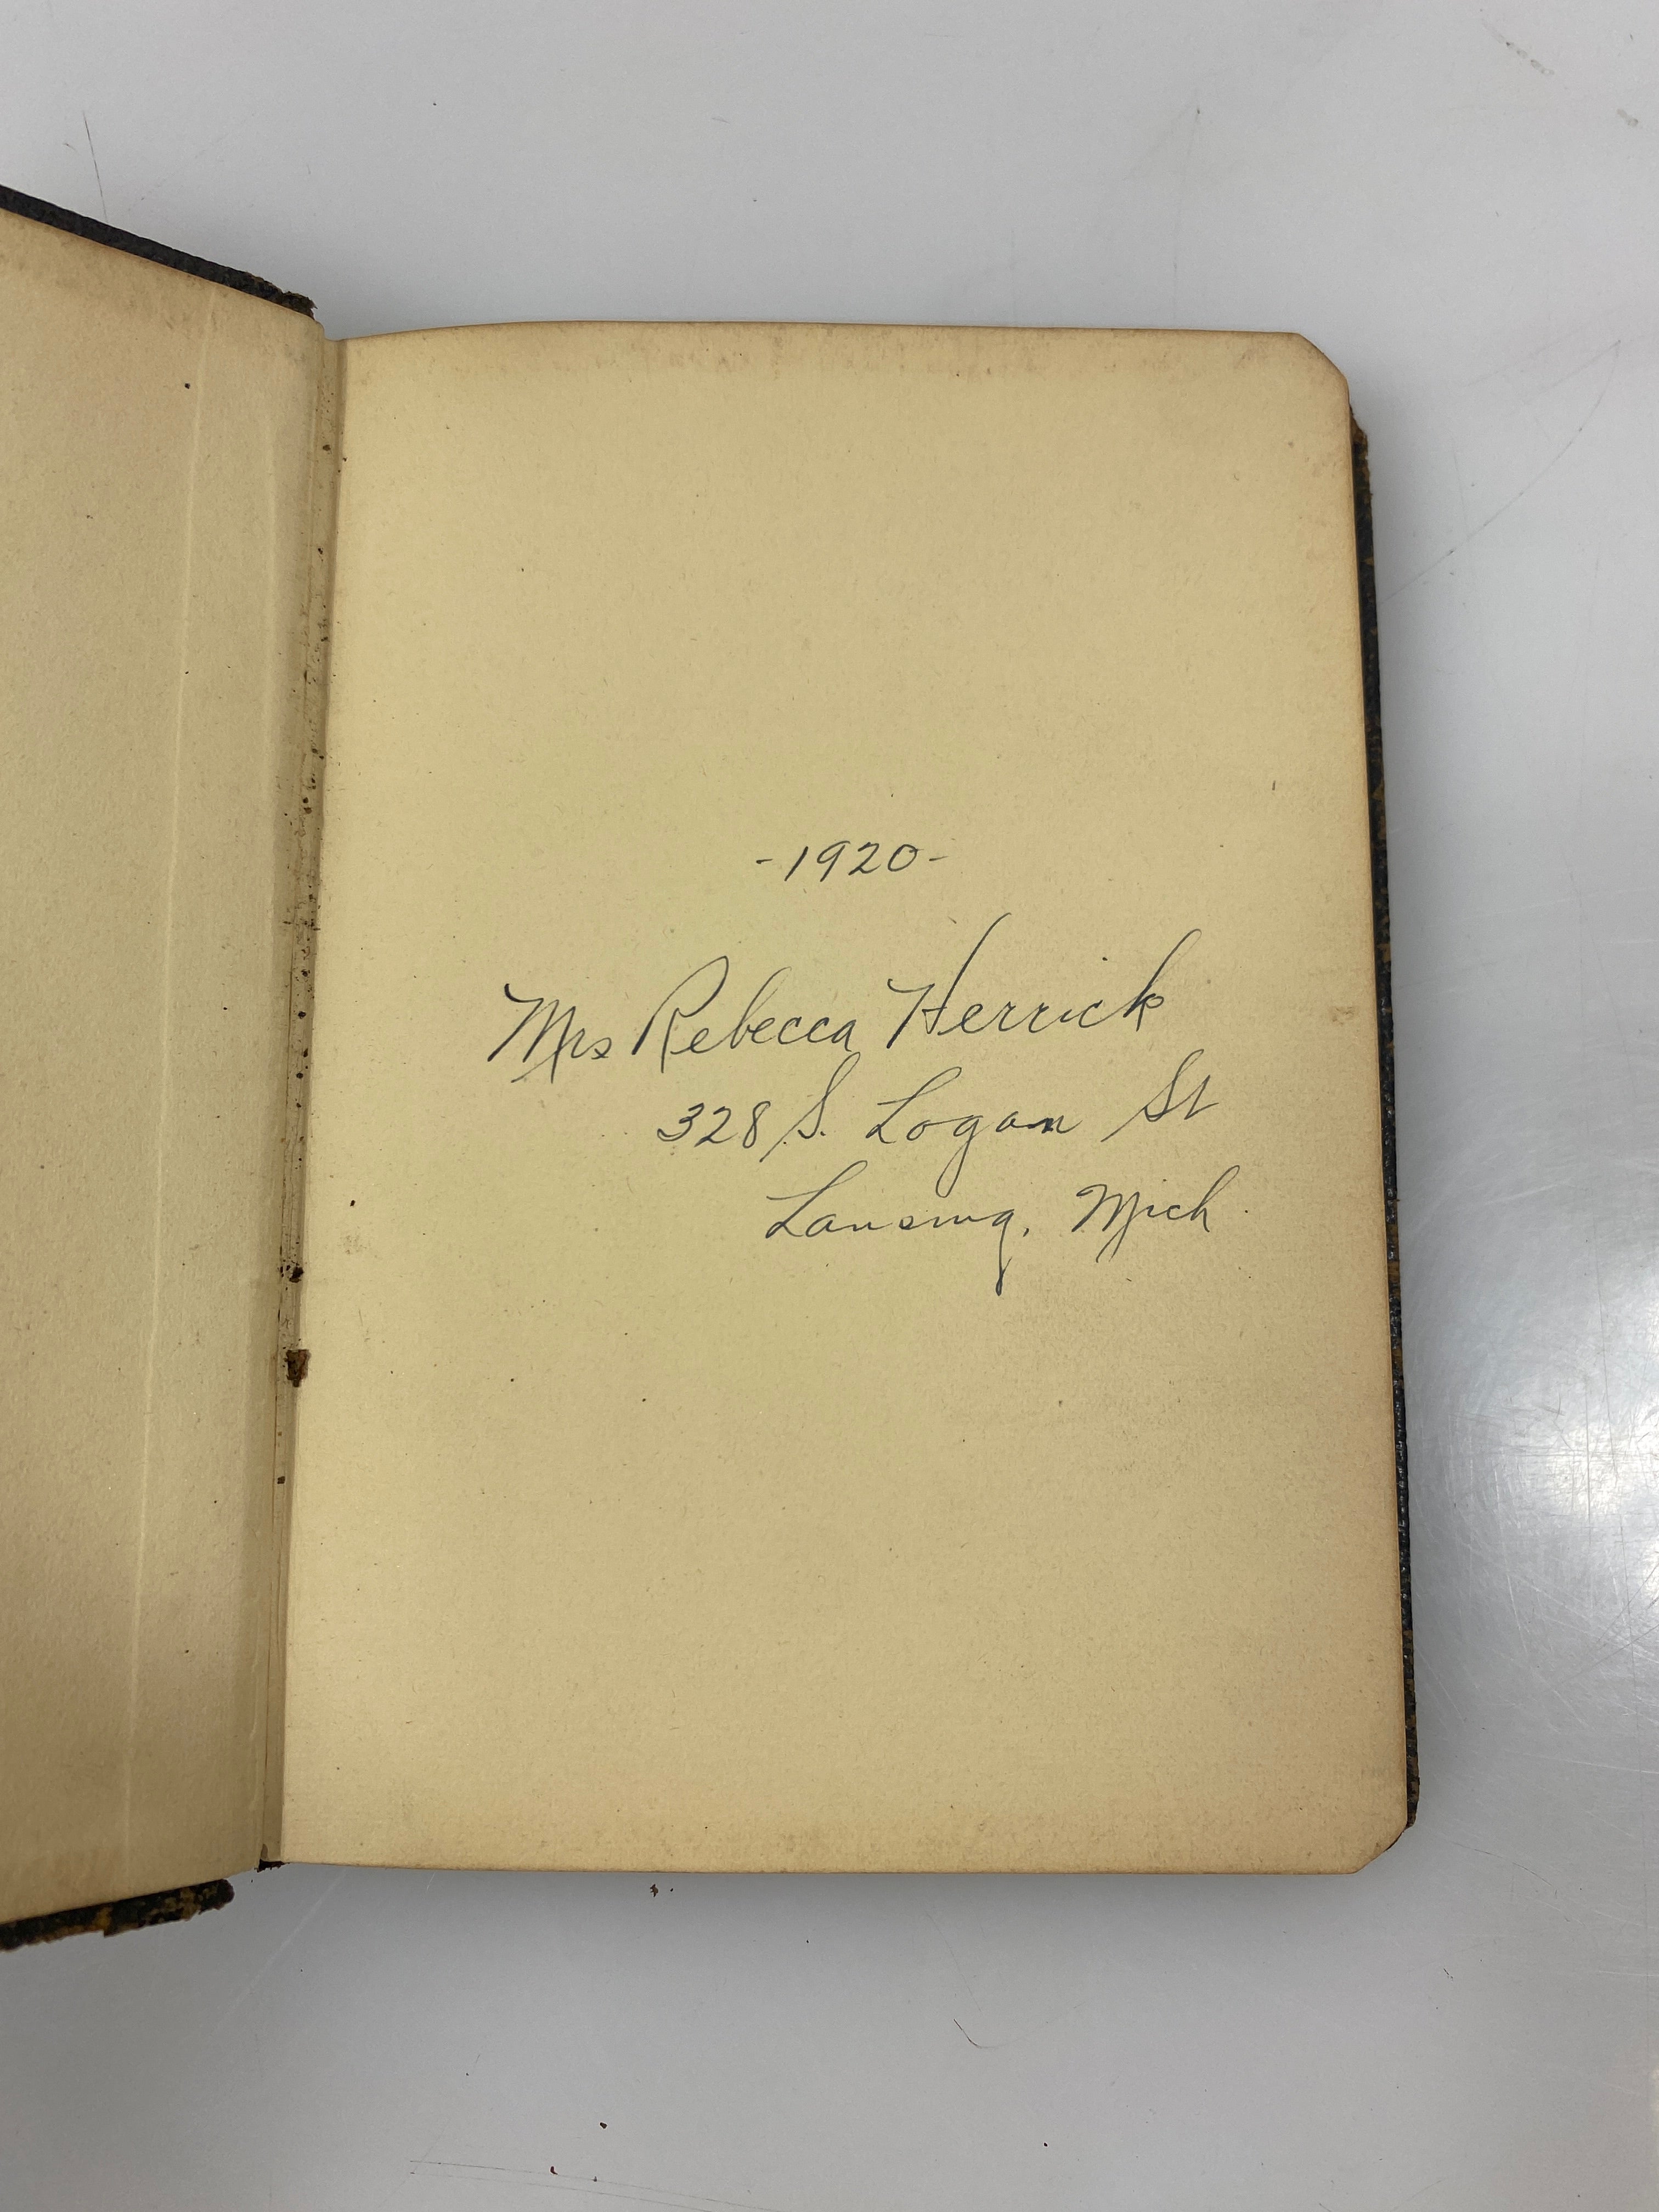 -1920-
Mrs Rebecca Herrick
328 S. Logan St
Lansing, Mich.